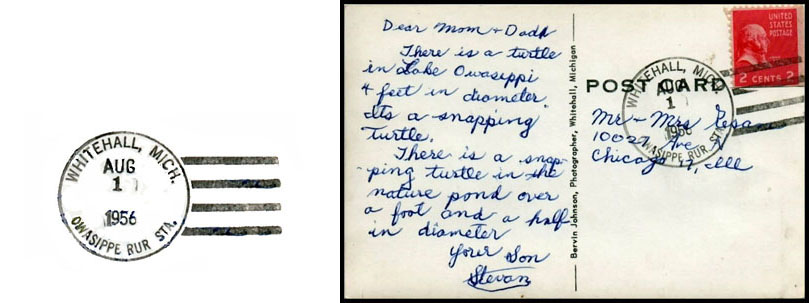 WHITEHALL, MICH.
AUG
1
1956
OWASIPPE RUR STA.
Dear Mom + Dad
There is a turtle
in Lake Owasippi
4 feet in diometer.
Its a snapping
turtle.
There is a snap-
ping turtle in the
nature pond over
a foot and a half
in diameter
Your Son
Stevan
Bervin Johnson, Photographer, Whitehall, Michigan
UNITED
STATES
POSTAGE
2 CENTS 2
WHITEHALL, MICH.
AUG
1
1956
OWASIPPE RUR STA.
POST CARD
Mr + Mrs
Ave N
Chicago 17, Ill